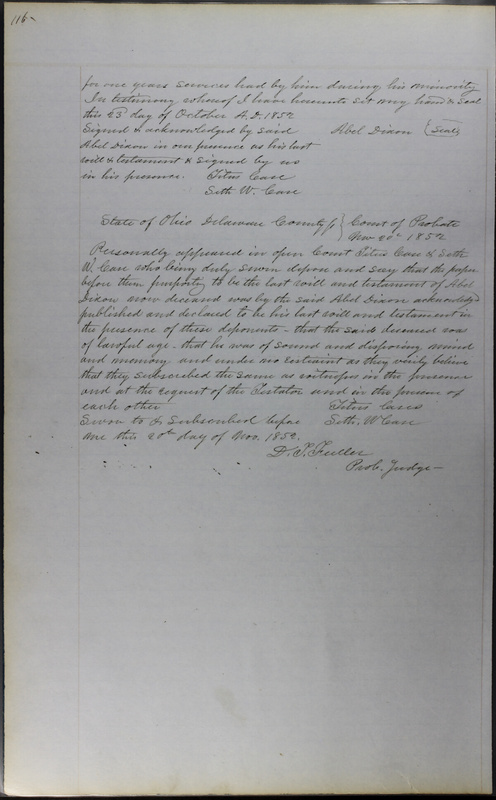 116
for one years services had by him during his minority
In testimony whereof I have hereunto set my hand & seal
this 23d day of October A.D. 1852
Signed & acknowledged by said Abel Dixon {Seal}
Abel Dixon in our presence as his last
will & testament & signed by us
in his presence. Titus Case
Seth W. Case
State of Ohio Delaware County ss } Court of Probate
Nov 20th 1852
Personally appeared in open Court Titus Case & Seth
W. Case who being duly sworn depose and say that the paper
before them purporting to be the last will and testament of Abel
Dixon now deceased was by the said Abel Dixon acknowledged
published and declared to be his last will and testament in
the presence of these deponents - that the said deceased was
of lawful age - that he was of sound and disposing mind
and memory and under no restraint as they verily believe
that they subscribed the same as witnesses in the presence
and at the request of the Testator and in the presence of
each other Titus Case
Sworn to & Subscribed before Seth. W Case
me this 20th day of Nov. 1852.
D. T. Fuller
Prob. Judge